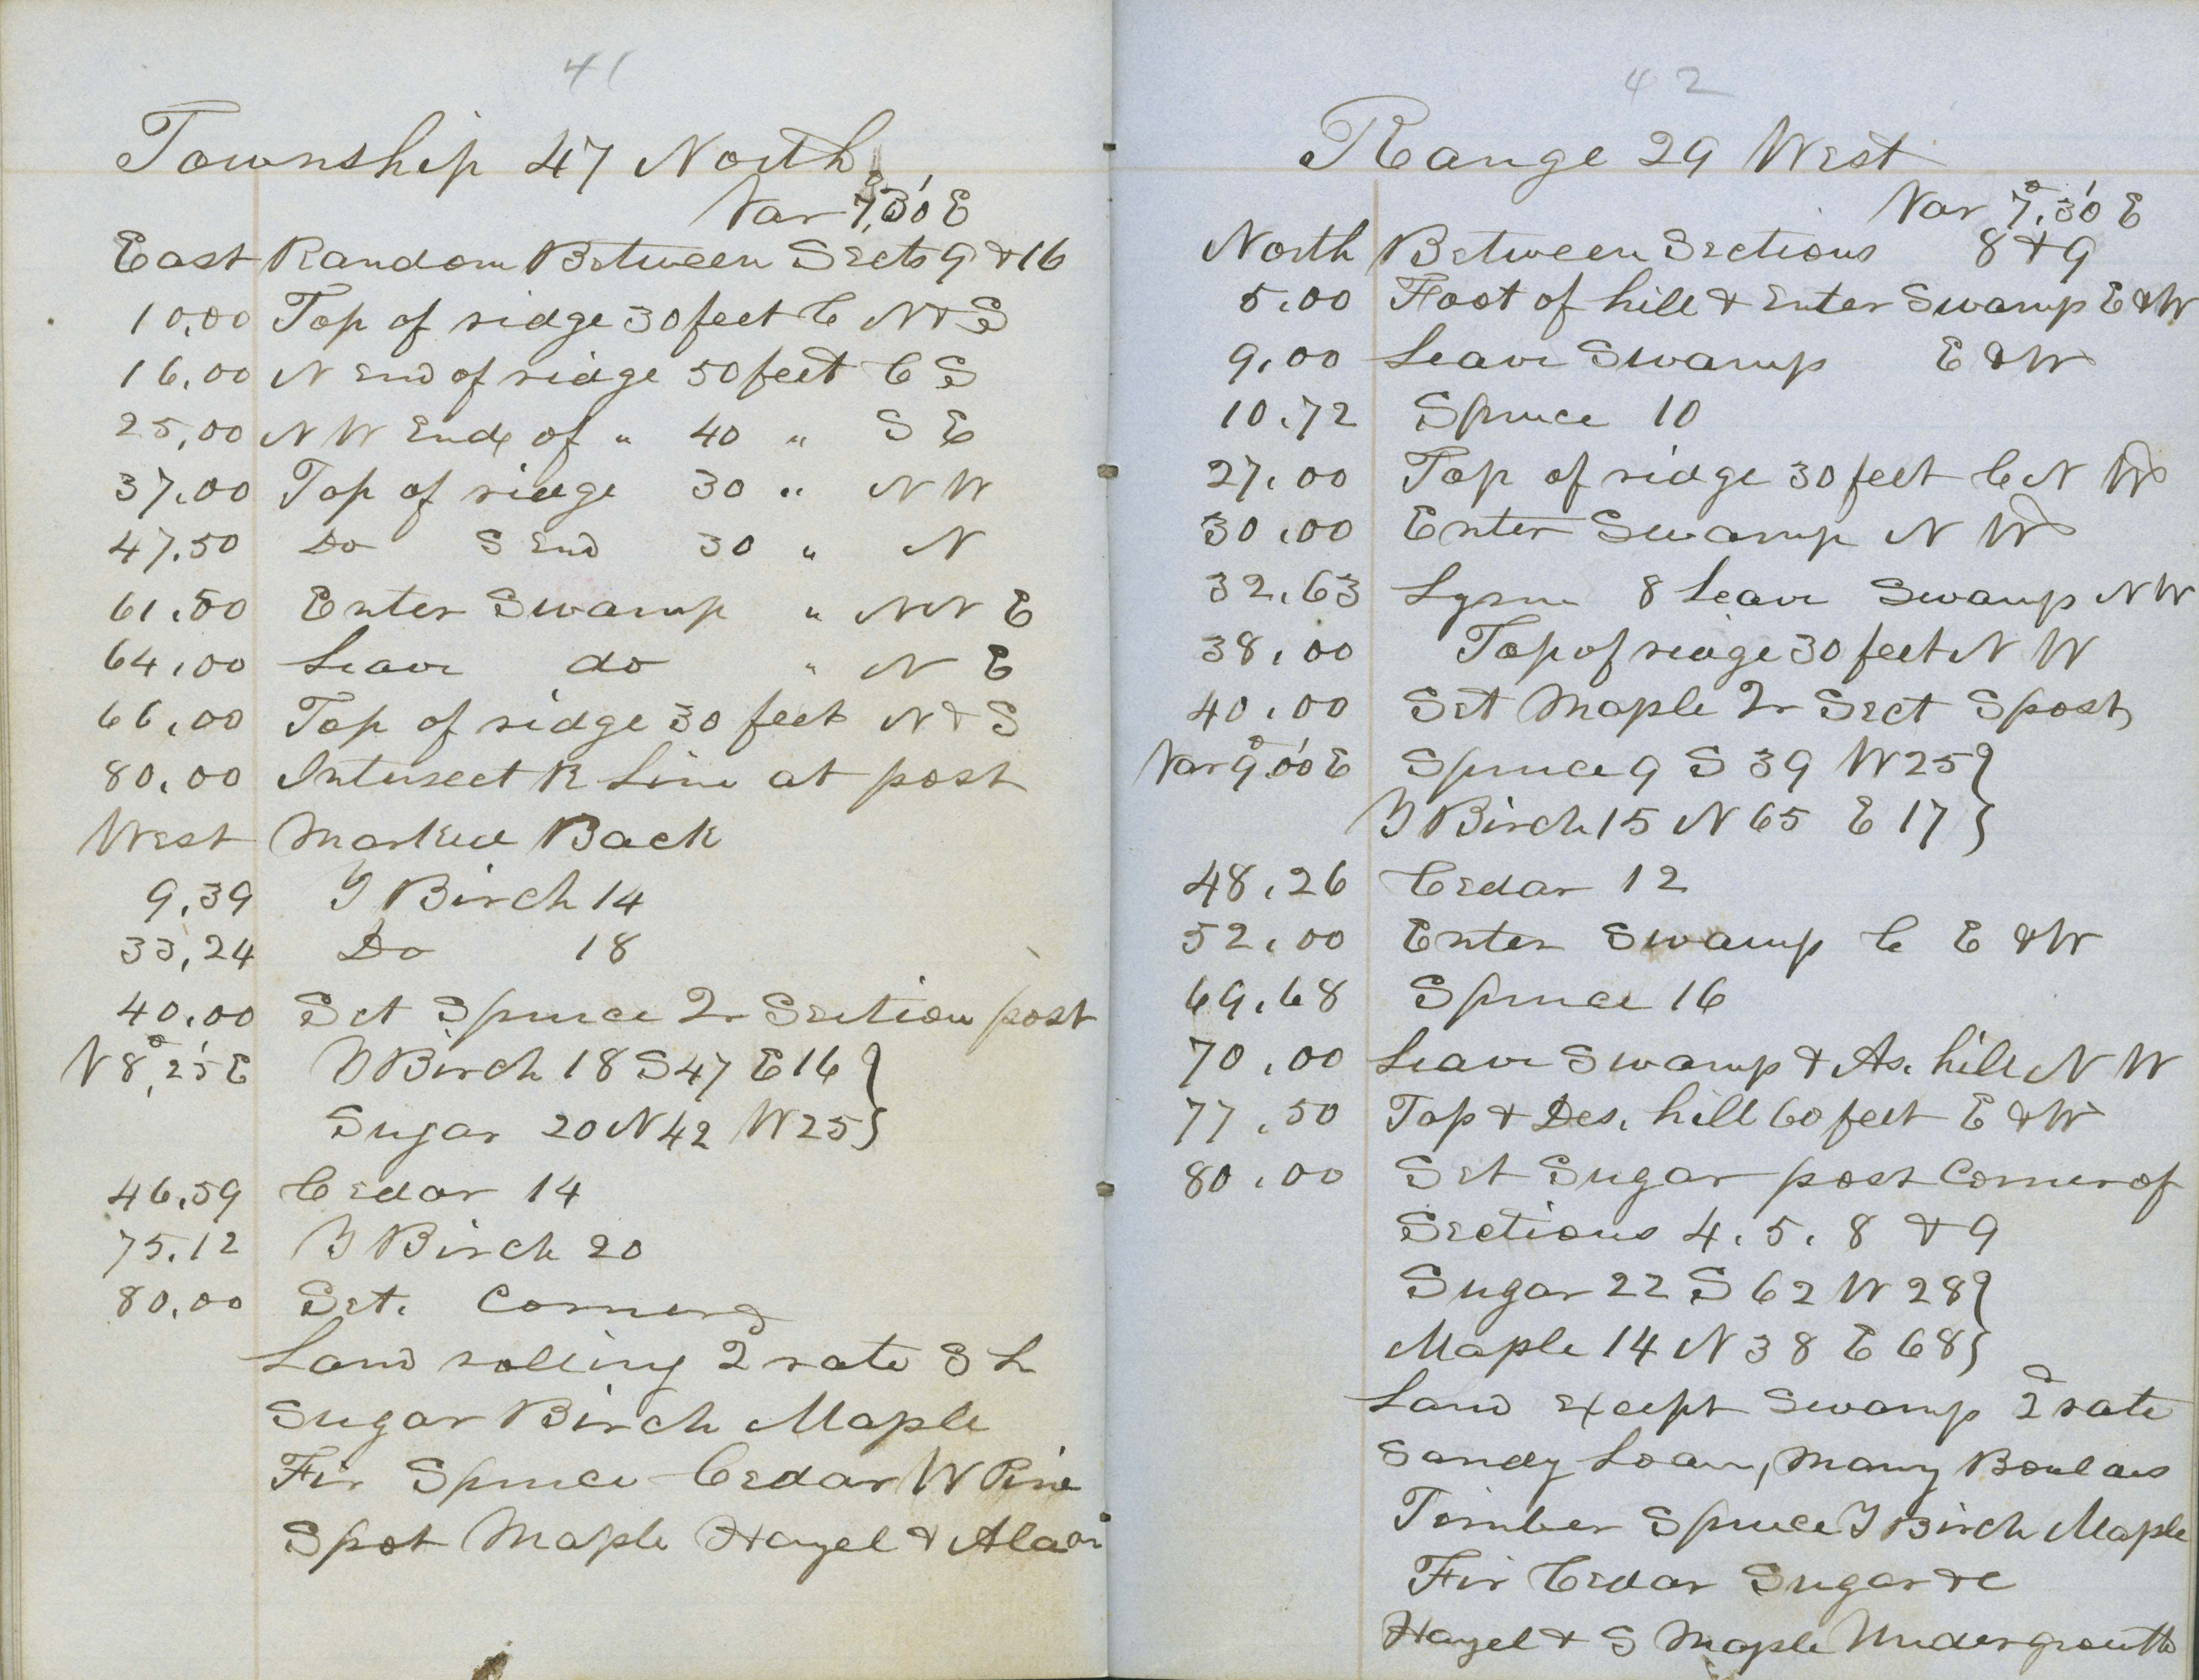 41
Township 47 North
Var 7°,30' E
East Random Between Sects 9 & 16
10,00 Top of ridge 30 feet C N & S
16,00 N End of ridge 50 feet C S
25,00 N W End of " 40 " S E
37,00 Top of ridge 30 " N W
47,50 Do S End 30 " N
61,50 Enter Swamp " N N E
64,00 Leave do " N E
66,00 Top of ridge 30 feet N & S
80,00 Intersect R Line at post
West Marked Back
9,39 Y Birch 14
33,24 Do 18
40,00 Set Spruce Qr Section post
V 8°,25' E Y Birch 18 S 47 E 16 }
Sugar 20 N 42 W 25 }
46,59 Cedar 14
75,12 Y Birch 20
80,00 Set. Corners
Land rolling 2 rate S L
Sugar Birch Maple
Fir Spruce Cedar W Pine
Spot Maple Hazel & Alder
42
Range 29 West
Var 7°,30' E
North Between Sections 8 & 9
5,00 Foot of hill & Enter Swamp E & W
9,00 Leave Swamp E & W
10,72 Spruce 10
27,00 Top of ridge 30 feet C N W
30,00 Enter Swamp N W
32,63 8 Leave Swamp N W
38,00 Top of ridge 30 feet N W
40,00 Set Maple Qr Sect S post
Var 9°,00' E Spruce 9 S 39 W 25 }
Y Birch 15 N 65 E 17 }
48,26 Cedar 12
52,00 Enter Swamp C E & W
69,68 Spruce 16
70,00 Leave Swamp & As. hill N W
77,50 Top & Des. hill 60 feet E & W
80,00 Set Sugar post Corner of
Sections 4. 5. 8 & 9
Sugar 22 S 62 W 28 }
Maple 14 N 38 E 68 }
Land except Swamp 2 rate
Sandy Loam, Many Boulders
Timber Spruce Y Birch Maple
Fir Cedar Sugar &c
Hazel & S Maple Undergrowth